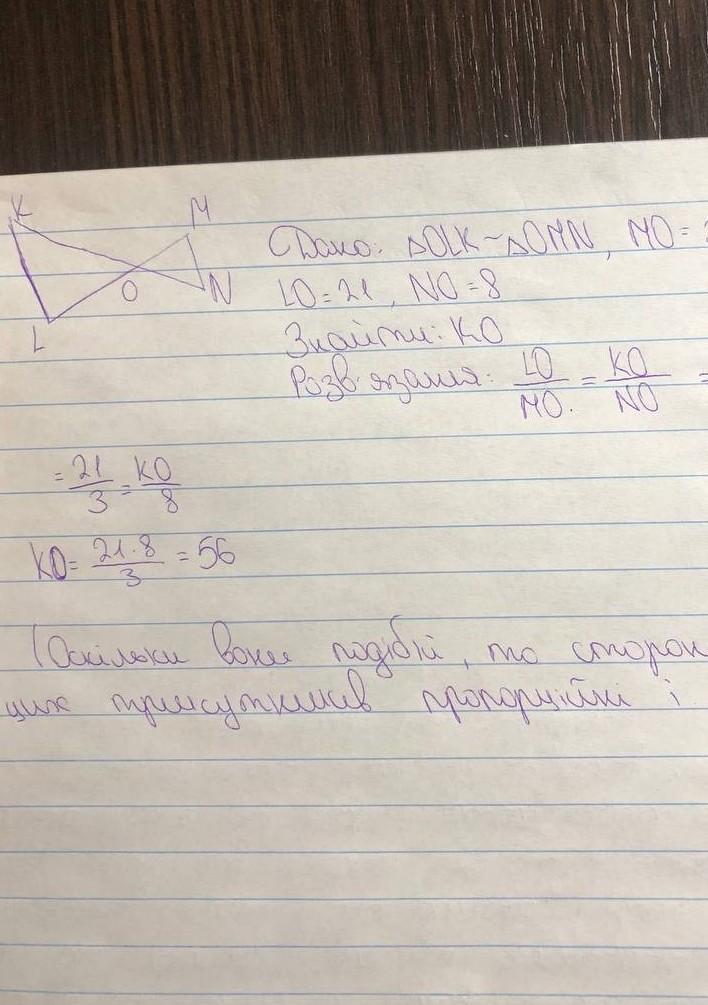 K
M
O
N
L
Дано: ΔOLK~ΔOMN, MO=
LO=21, NO=8
Знайти: KO
Розв'язання: LO/MO. = KO/NO =
= 21/3 = KO/8
KO= 21·8/3 = 56
(Оскільки вони подібні, то сторон
цих трикутників пропорційні і